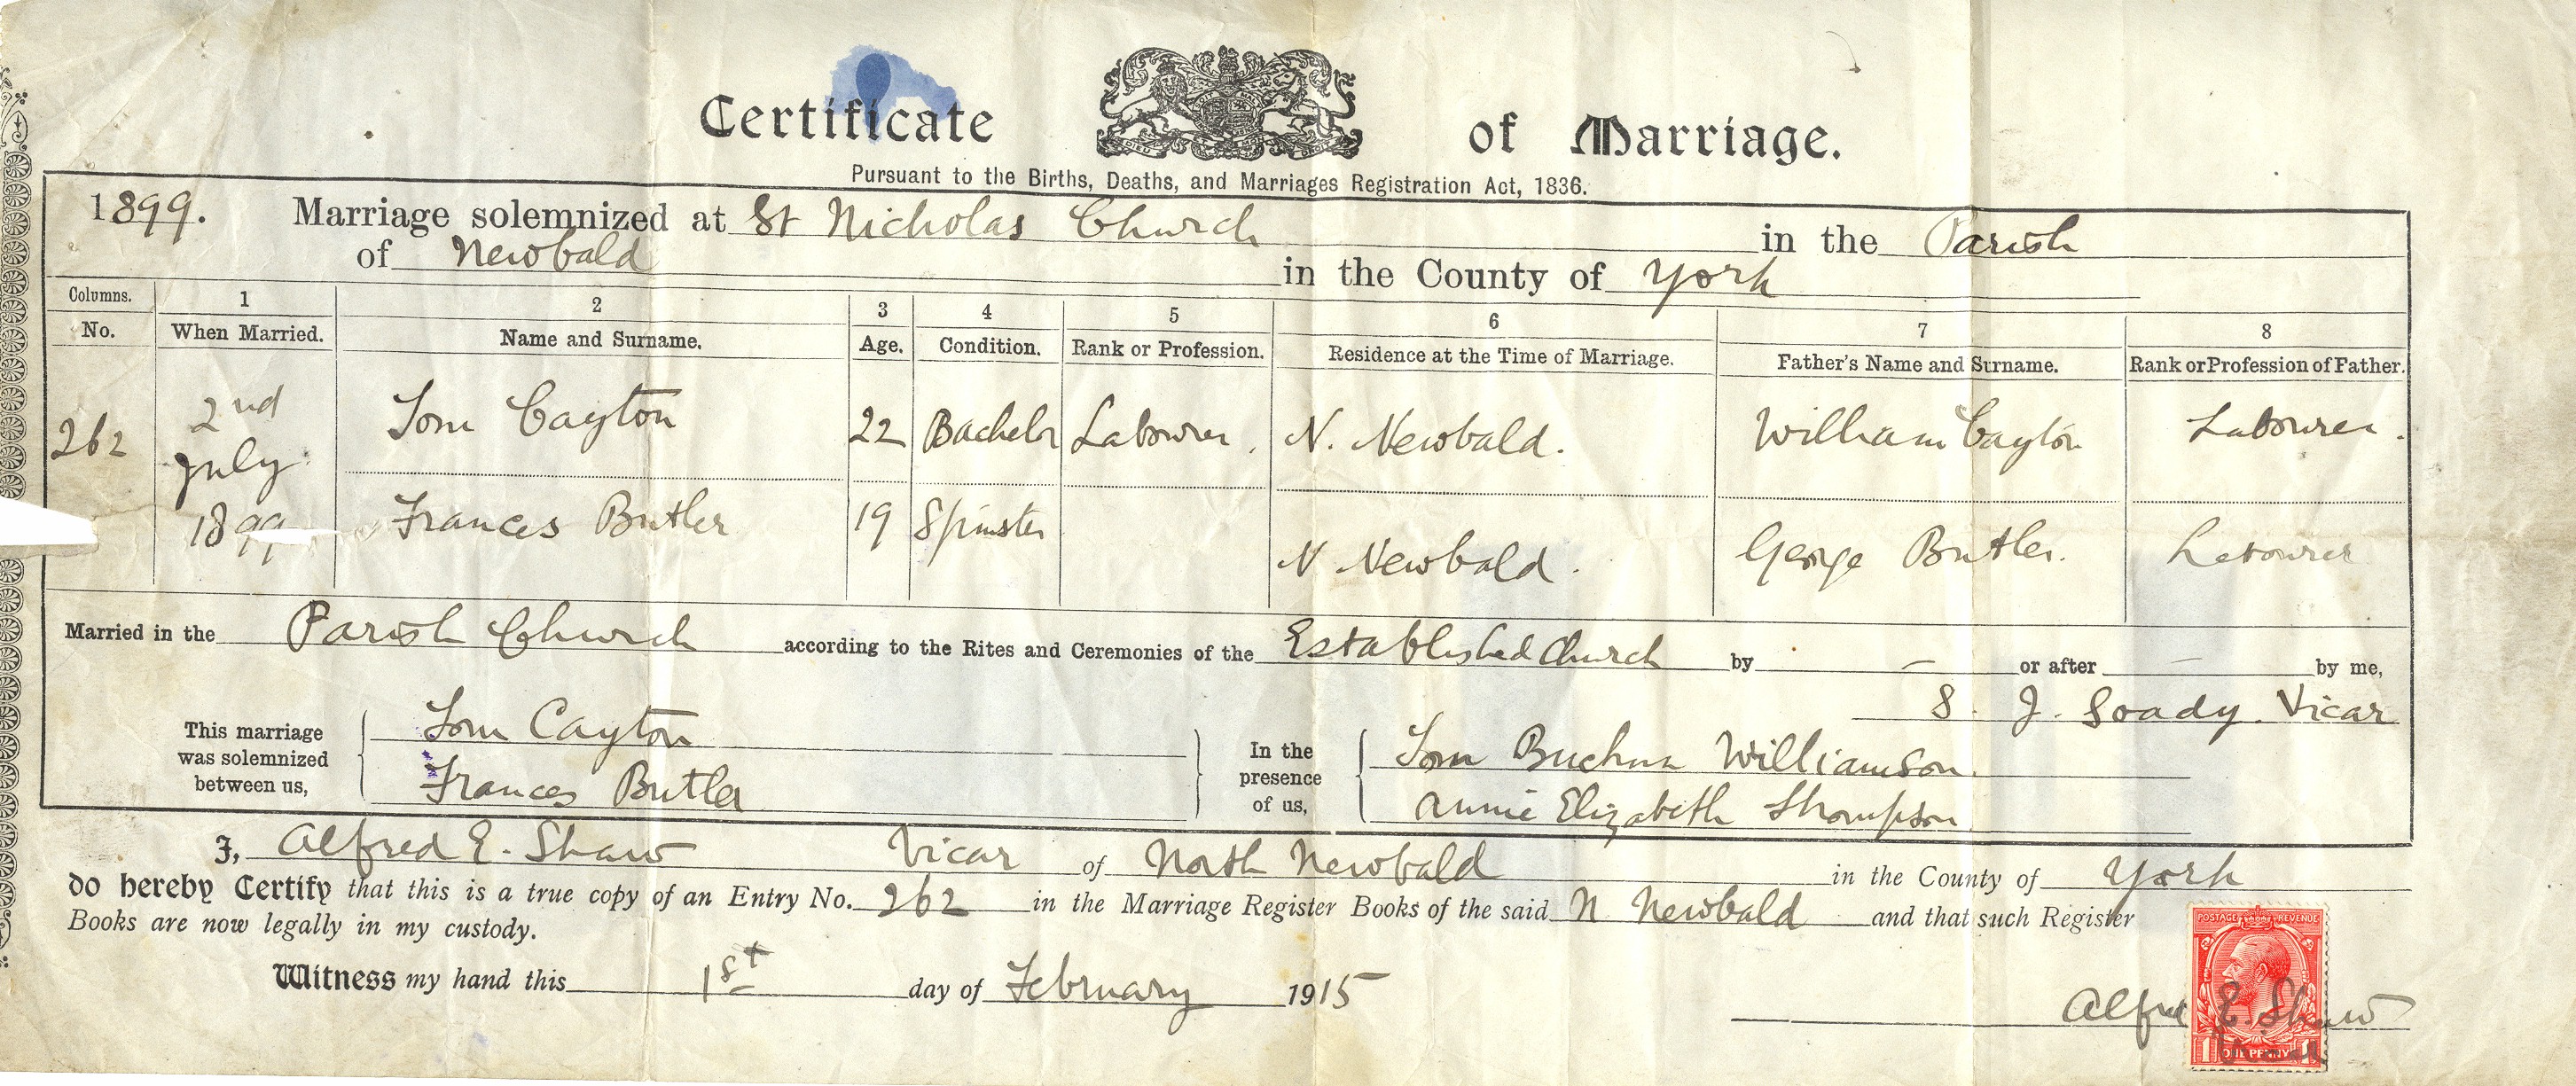 Certificate of Marriage.
Pursuant to the Births, Deaths, and Marriages Registration Act, 1836.
1899. Marriage solemnized at St Nicholas Church in the Parish
of Newbald in the County of York
Columns. 1 2 3 4 5 6 7 8
No. When Married. Name and Surname. Age. Condition. Rank or Profession. Residence at the Time of Marriage. Father's Name and Surname. Rank or Profession of Father.
262 2nd July 1899 Tom Cayton 22 Bachelor Labourer. N. Newbald. William Cayton Labourer.
Frances Butler 19 Spinster N Newbald. George Butler. Labourer
Married in the Parish Church according to the Rites and Ceremonies of the Established Church by — or after — by me,
S. J. Soady. Vicar
This marriage was solemnized between us,
Tom Cayton
Frances Butler
In the presence of us,
Tom Williamson.
Annie Elizabeth Thompson
I, Alfred E. Shaw Vicar of North Newbald in the County of York
do hereby Certify that this is a true copy of an Entry No. 262 in the Marriage Register Books of the said N Newbald and that such Register
Books are now legally in my custody.
Witness my hand this 1st day of February 1915
Alfred E. Shaw
Vicar
POSTAGE REVENUE
1 ONE PENNY 1